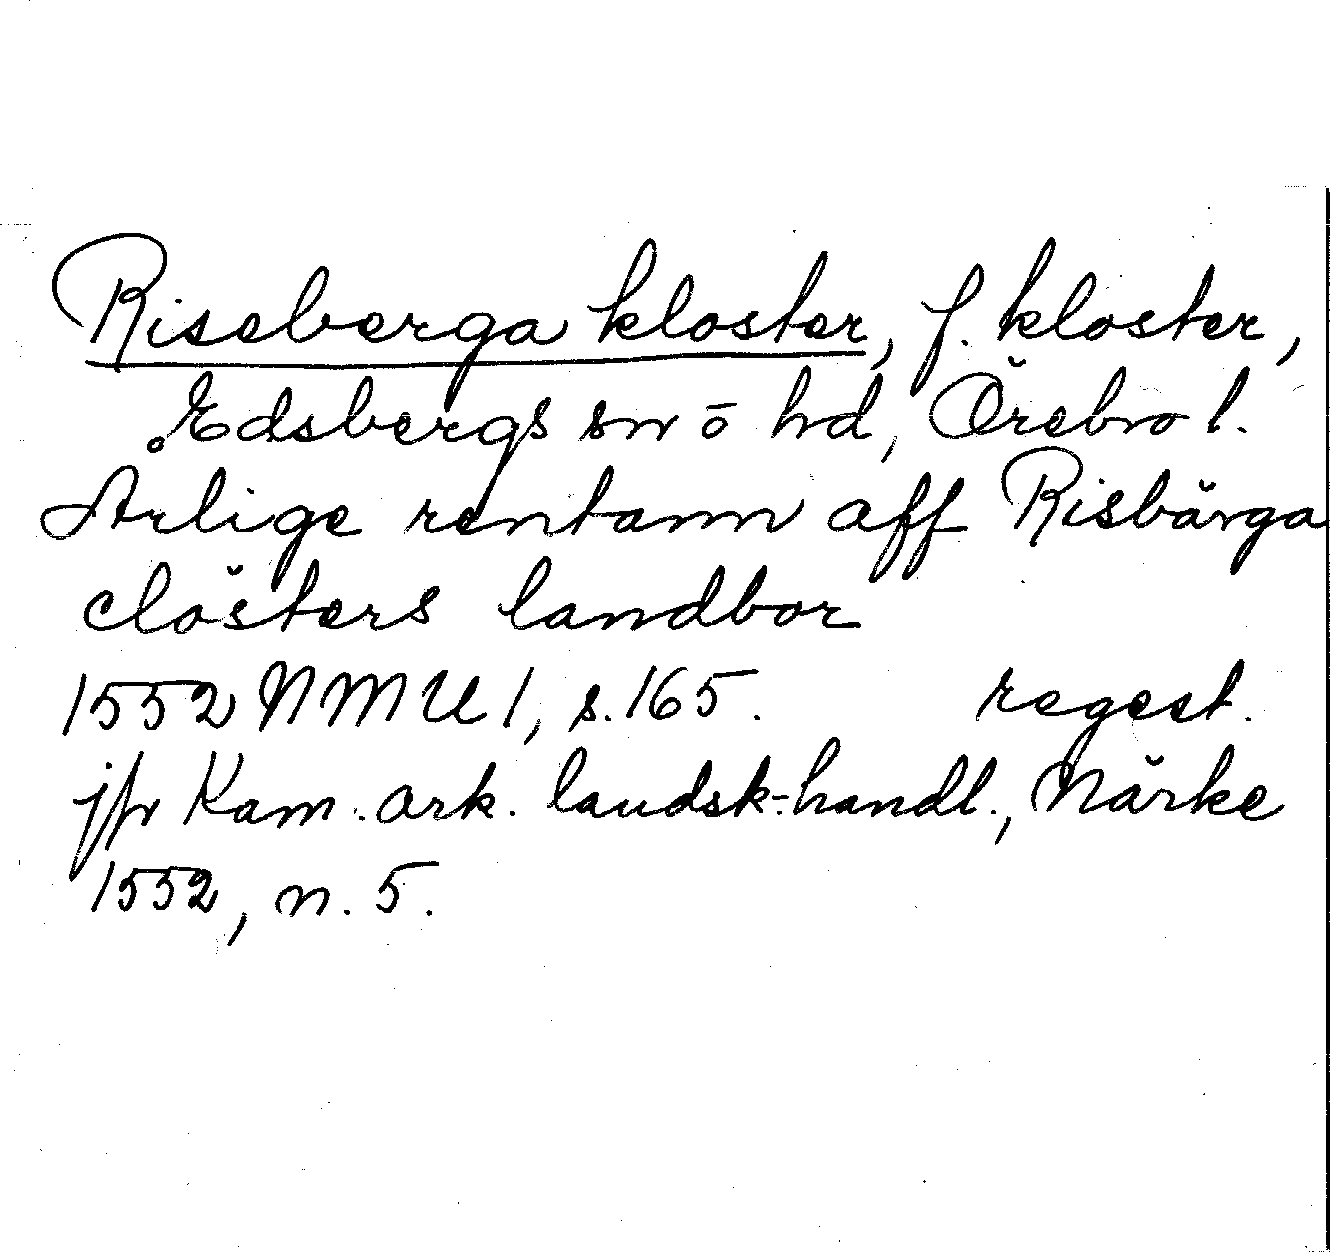 Riseberga kloster, f. kloster,
Edsbergs sn o hd, Örebro l.
Årlige rentann aff Risbärga
clösters landbor
1552 NMU 1, s. 165. regest.
jfr Kam. ark. landsk-handl., Närke
1552, n. 5.